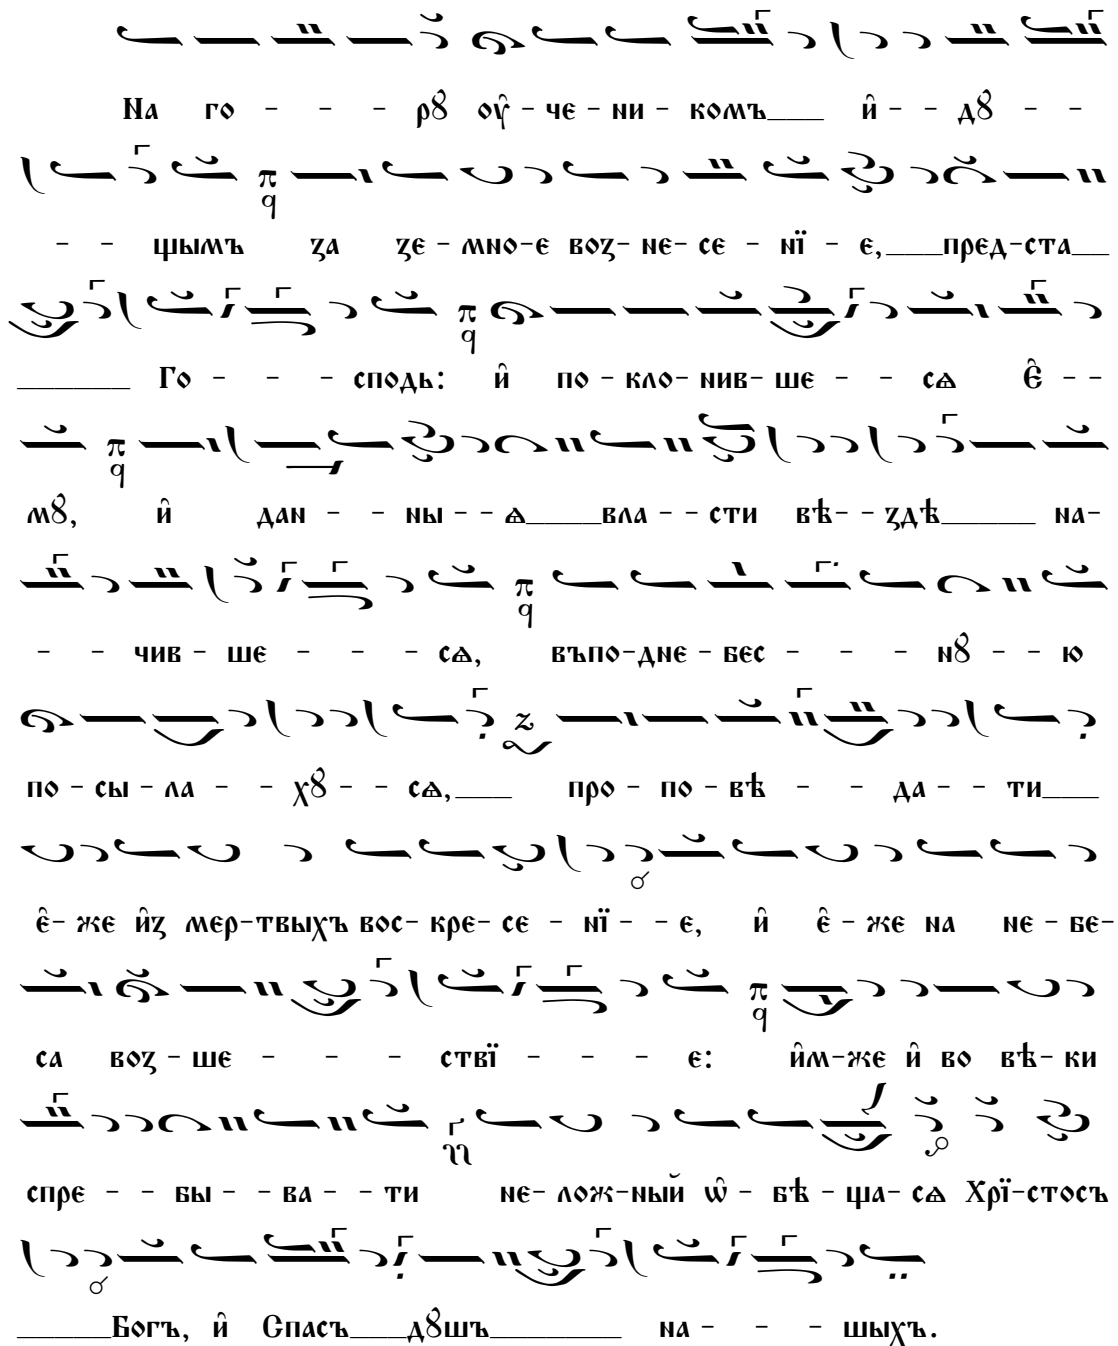 На го - - - рꙋ ᲂу҆ - че - ни - комъ___ и҆ - - дꙋ - -
- - щымъ за зе - мно - е воз - не - се - нї - е,___пред - ста__
______ Го - - - сподь: и҆ по - кло - нив - ше - - сѧ Є҆ - -
мꙋ, и҆ дан - - ны - - ѧ____вла - - сти вѣ - - здѣ_____ на -
- - чив - ше - - - сѧ, въпо - дне - бес - - - нꙋ - - ю
по - сы - ла - - хꙋ - - сѧ,___ про - по - вѣ - - да - - ти___
є҆ - же и҆з мер - твыхъ вос - кре - се - нї - - е, и҆ є҆ - же на не - бе -
са воз - ше - - - ствї - - - е: и҆м - же и҆ во вѣ - ки
спре - - бы - - ва - - ти не - лож - ный ѡ҆ - бѣ - ща - сѧ Хрї - стосъ
_____Богъ, и҆ Спасъ___дꙋшъ_______ на - - - шыхъ.